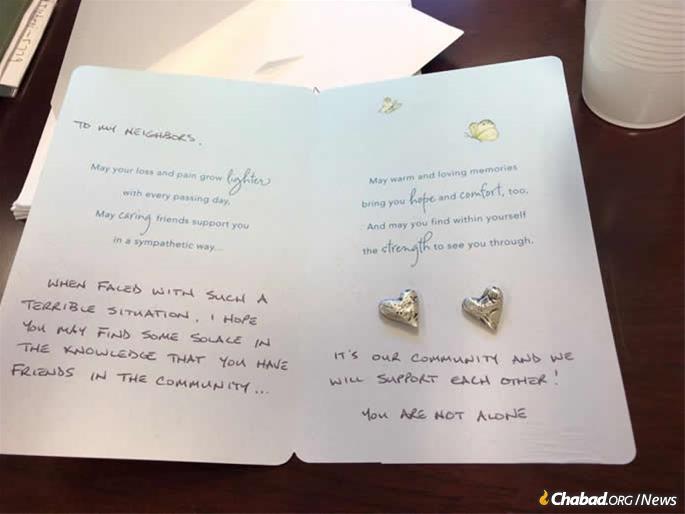 TO MY NEIGHBORS,
May your loss and pain grow lighter
with every passing day,
May caring friends support you
in a sympathetic way...
WHEN FACED WITH SUCH A
TERRIBLE SITUATION, I HOPE
YOU MAY FIND SOME SOLACE IN
THE KNOWLEDGE THAT YOU HAVE
FRIENDS IN THE COMMUNITY...
May warm and loving memories
bring you hope and comfort, too,
And may you find within yourself
the strength to see you through.
IT'S OUR COMMUNITY AND WE
WILL SUPPORT EACH OTHER!
YOU ARE NOT ALONE
Chabad.ORG/News